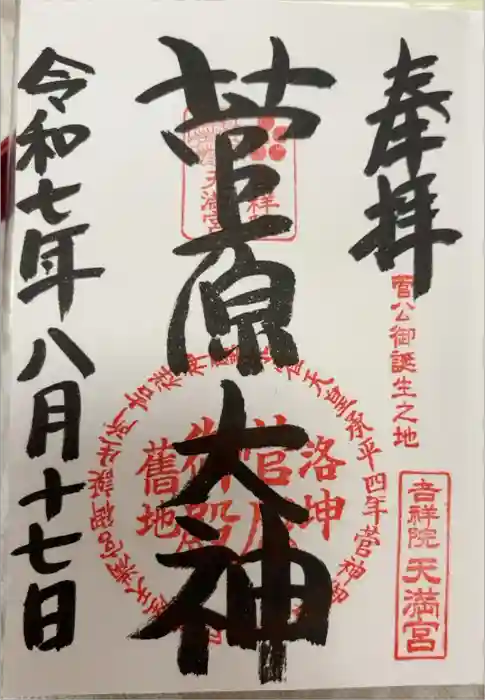 奉拝
菅公御誕生之地
吉祥院天満宮
菅原大神
天満宮
洛坤
舊地
天皇承平四年菅神
令和七年八月十七日